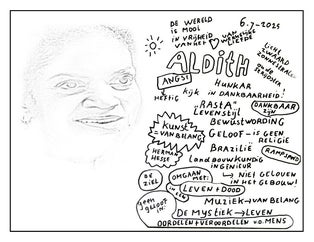 DE WERELD
IS MOOI
IN VRIJHEID
VAN HET ♥ VAN WERKELIJKE
LIEFDE
6.7-2025
LICHT
ZWAARD
ZONNESTRAAL
OUDE
ALDITH
ANGST
HUNKAR
HEFTIG KIJK IN DANKBAARHEID!
"RASTA"
LEVENSTIJL
DANKBAAR
ZIJN
BEWUSTWORDING
KUNST
= VAN BELANG
GELOOF - IS GEEN
RELIGIE
HERMAN
HESSE
BRAZILIË
RAMPZAND
LANDBOUWKUNDIG
INGENIEUR
DE
ZIEL
OMGAAN
MET:
→ NIET GELOVEN
IN HET GEBOUW!
IN EEN
LEVEN + DOOD
GEEN
GELOOF
IN:
MUZIEK → VAN BELANG
DE MYSTIEK → LEVEN
OORDELEN + VEROORDELEN v.D. MENS